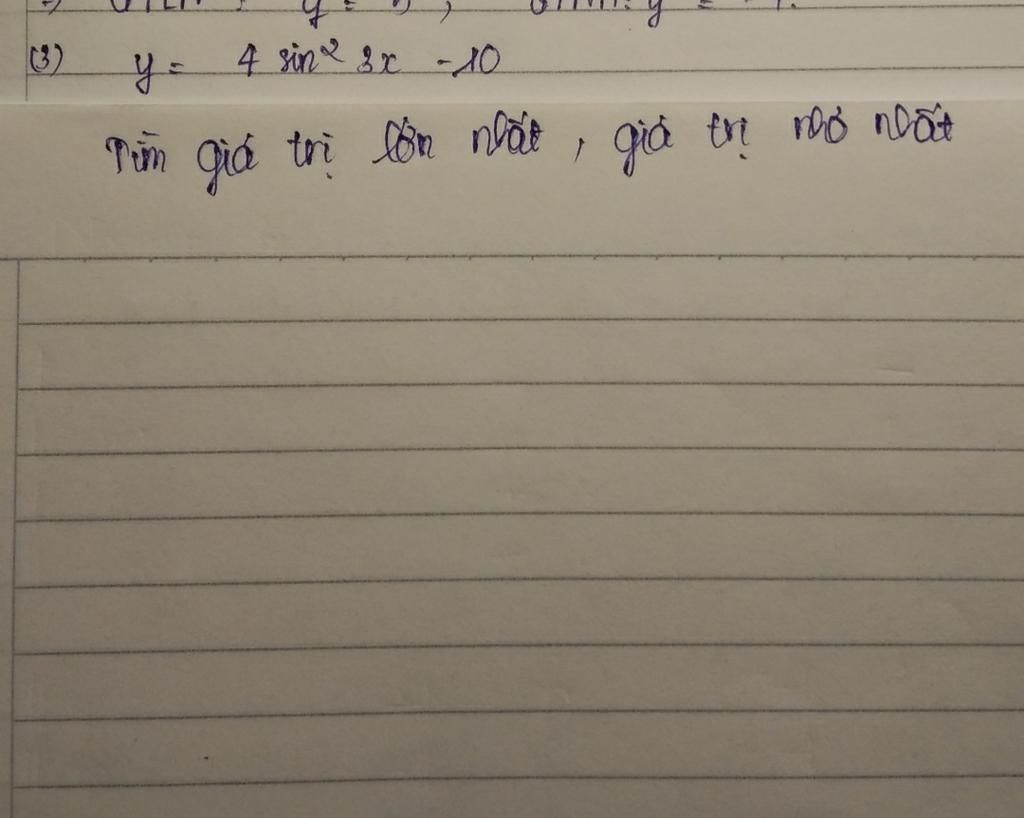 (3) y = 4 sin² 3x - 10
Tìm giá trị lớn nhất, giá trị nhỏ nhất